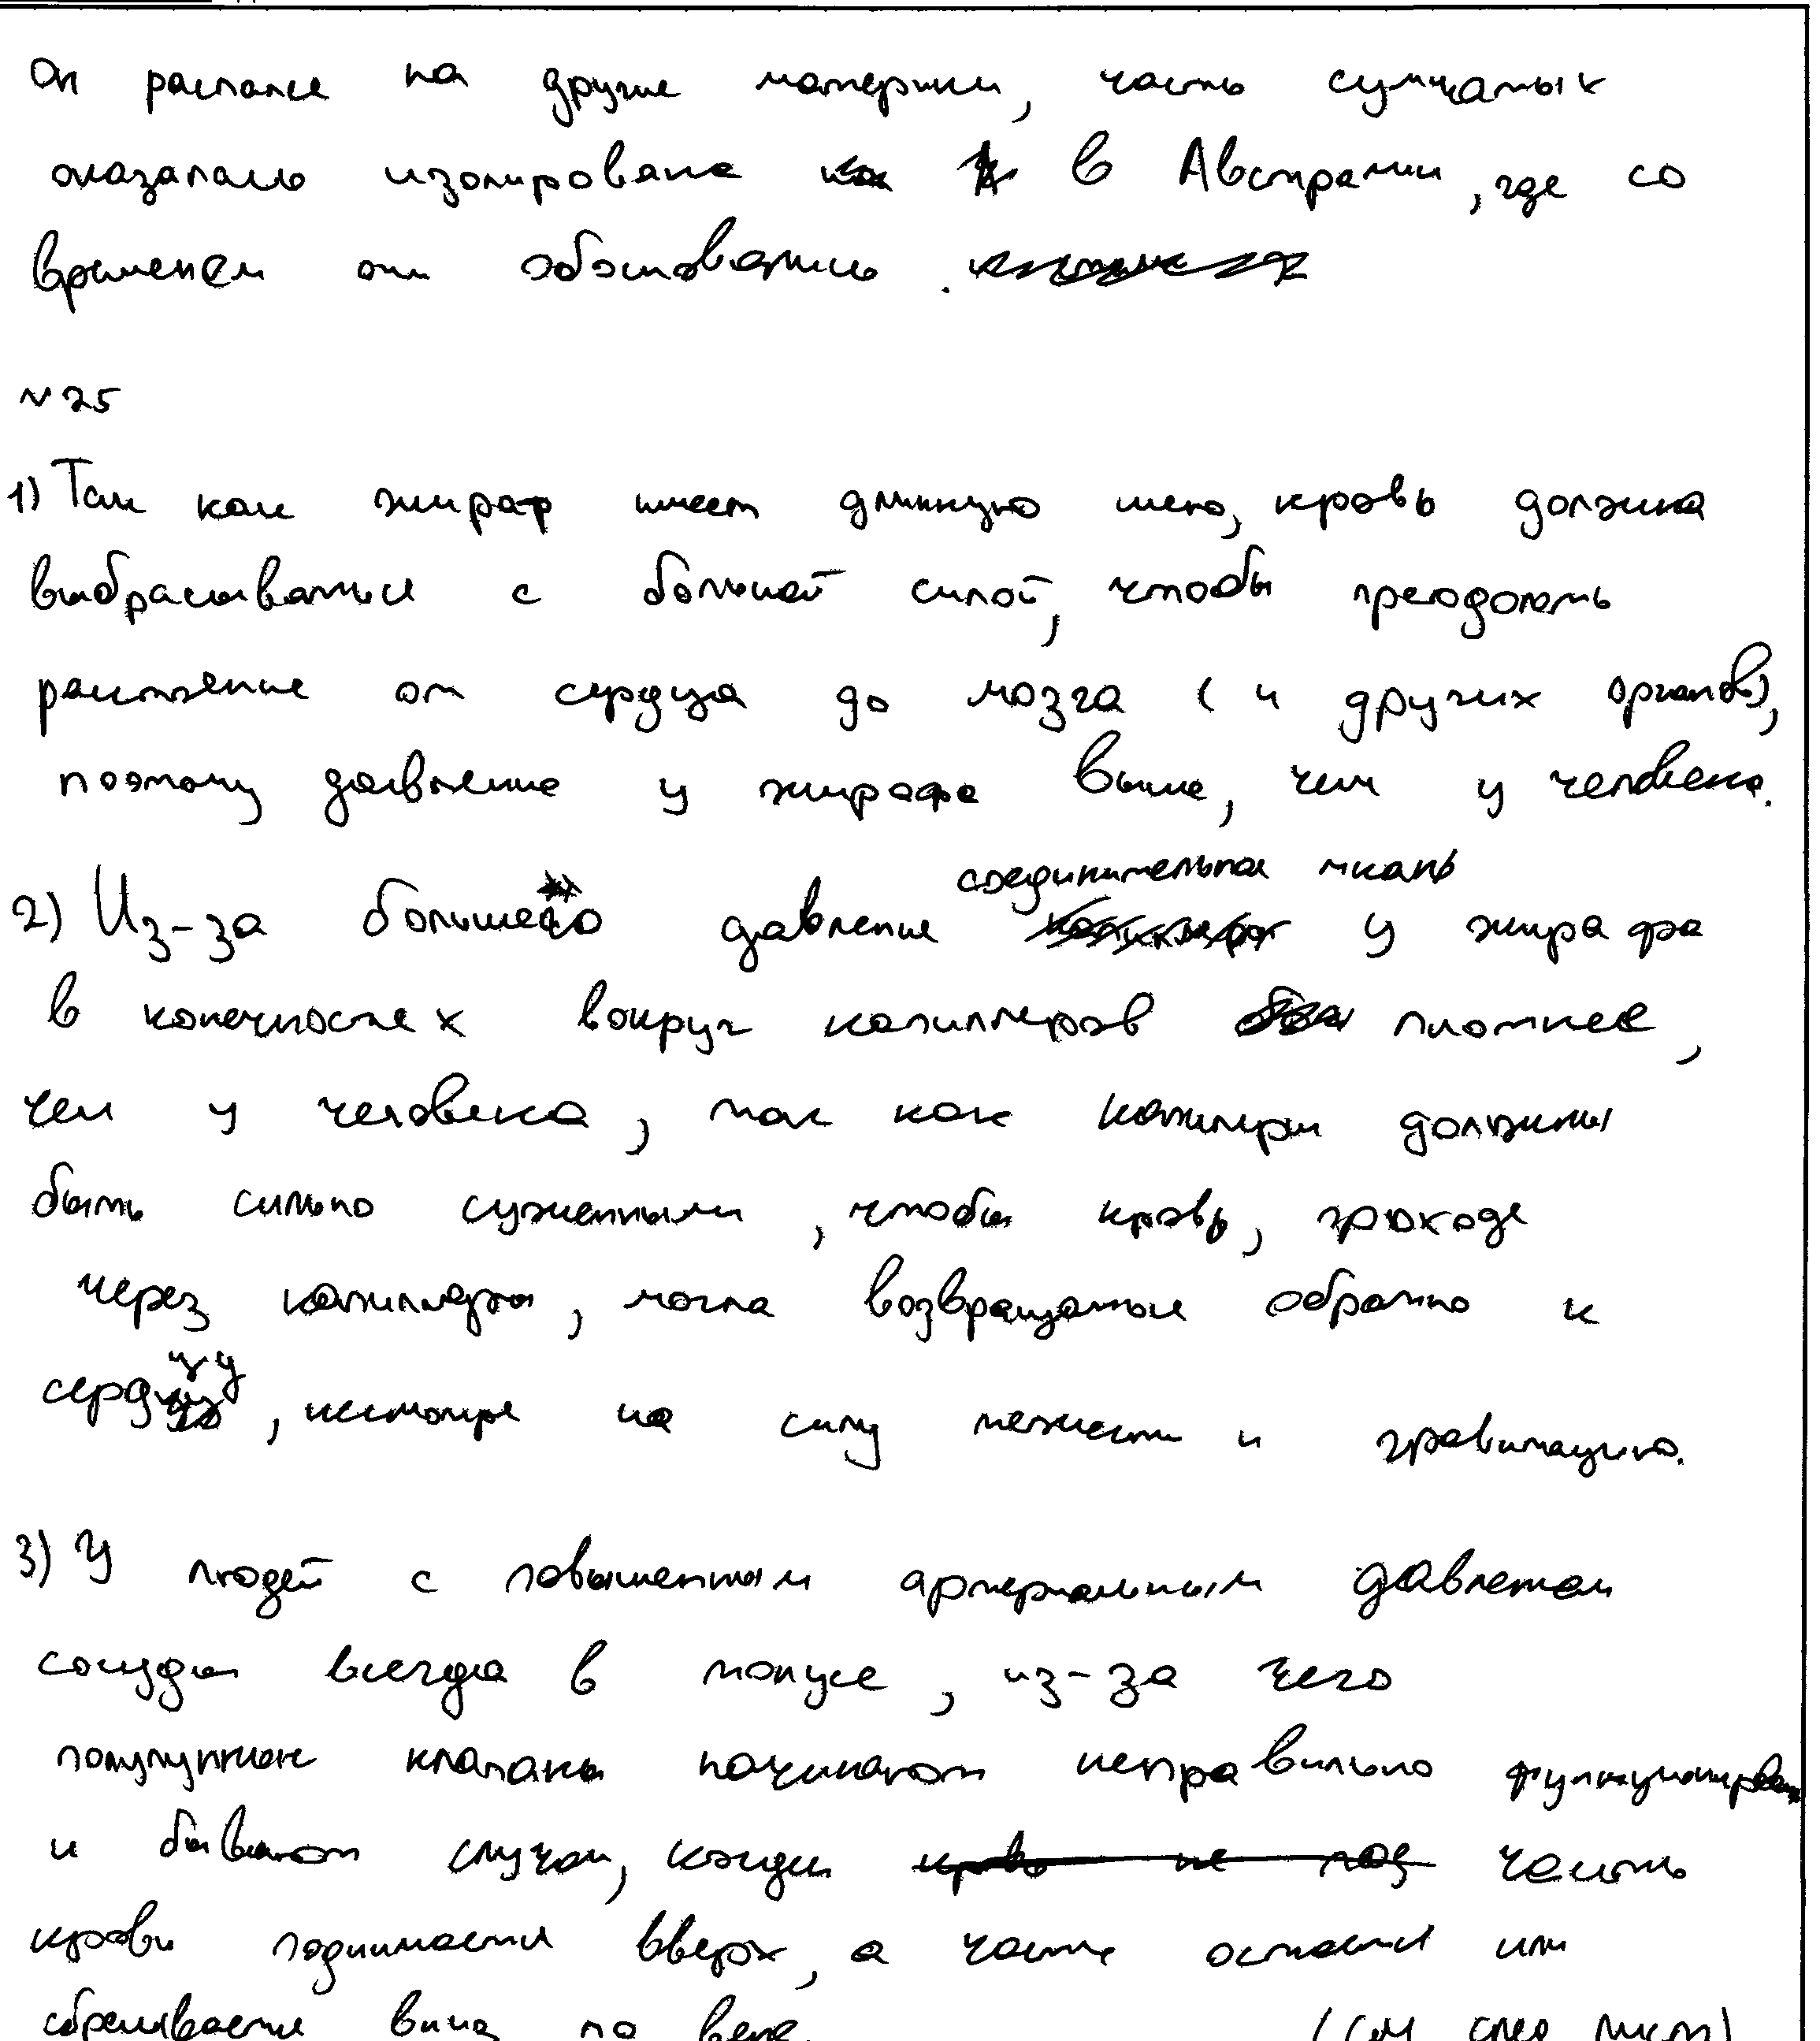 Он распался на другие материки, часть сумчатых
оказалась изолирована в Австралии, где со
временем они обосновались.
№25
1) Так как жираф имеет длинную шею, кровь должна
выбрасываться с большей силой, чтобы преодолеть
расстояние от сердца до мозга (и других органов),
поэтому давление у жирафа выше, чем у человека.
2) Из-за большего давление соединительная ткань у жирафа
в конечностях вокруг капилляров плотнее,
чем у человека, так как капилляры должны
быть сильно суженными, чтобы кровь, проходя
через капилляры, могла возвращаться обратно к
сердцу, несмотря на силу тяжести и гравитацию.
3) У людей с повышенным артериальным давлением
сосуды всегда в тонусе, из-за чего
полулунные клапаны начинают неправильно функционировать
и бывают случаи, когда часть
крови поднимается вверх, а часть остается или
сбрасывается вниз по вене.
(см след лист)